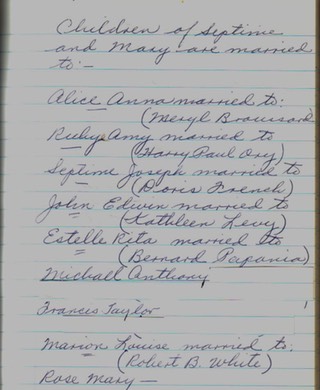 Children of Septime
and Mary are married
to:-
Alice Anna married to:
(Meryl Broussard
Ruby Amy married to
(Harry Paul Ory)
Septime Joseph married to
(Doris French)
John Edwin married to
(Kathleen Levy)
Estelle Rita married to
(Bernard Papania)
Michael Anthony
Francis Taylor
Marion Louise married to:
(Robert B. White)
Rose Mary —